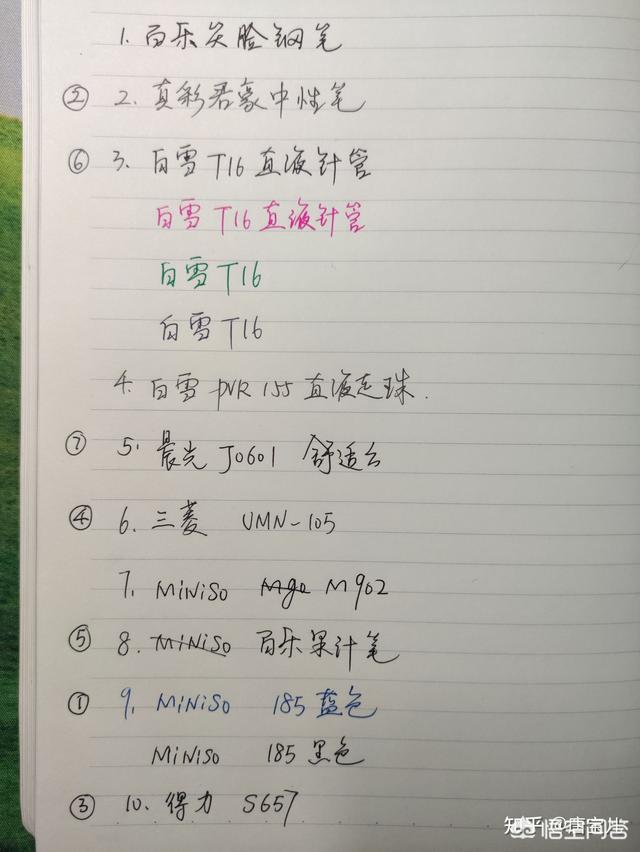 1. 百乐笑脸钢笔
② 2. 真彩君豪中性笔
⑥ 3. 白雪 T16 直液针管
白雪 T16 直液针管
白雪 T16
白雪 T16
4. 白雪 PVR 155 直液走珠.
⑦ 5. 晨光 J0601 舒适云
④ 6. 三菱 UMN-105
7. MiNiSo M902
⑤ 8. MiNiSo 百乐果汁笔
① 9. MiNiSo 185 蓝色
MiNiSo 185 黑色
③ 10. 得力 S657
悟空问答